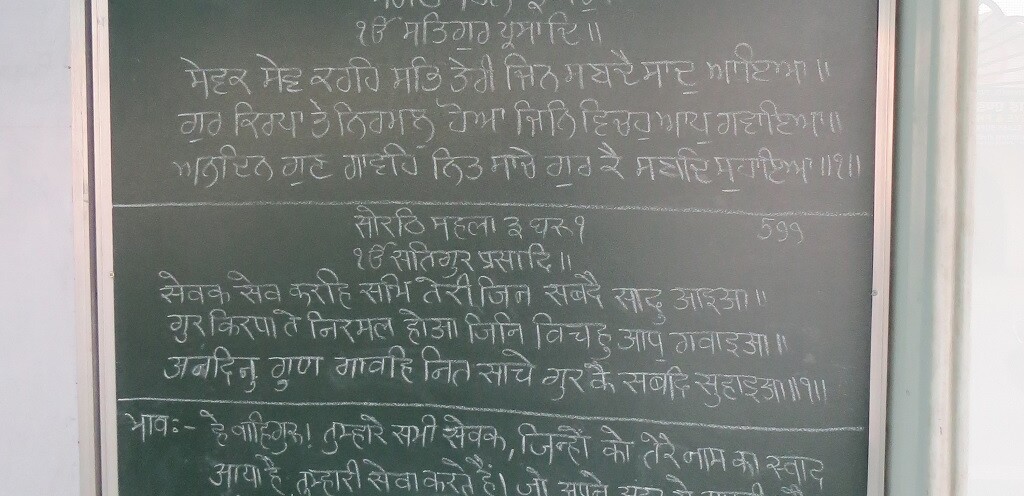 ੴ ਸਤਿਗੁਰ ਪ੍ਰਸਾਦਿ॥
ਸੇਵਕ ਸੇਵ ਕਰਹਿ ਸਭਿ ਤੇਰੀ ਜਿਨ ਸਬਦੈ ਸਾਦੁ ਆਇਆ॥
ਗੁਰ ਕਿਰਪਾ ਤੇ ਨਿਰਮਲੁ ਹੋਆ ਜਿਨਿ ਵਿਚਹੁ ਆਪੁ ਗਵਾਇਆ॥
ਅਨਦਿਨੁ ਗੁਣ ਗਾਵਹਿ ਨਿਤ ਸਾਚੇ ਗੁਰ ਕੈ ਸਬਦਿ ਸੁਹਾਇਆ॥੧॥
सोरठि महला ३ घरू १ 599
ੴ सतिगुर प्रसादि॥
सेवक सेव करहि सभि तेरी जिन सबदै सादु आइआ॥
गुर किरपा ते निरमल होआ जिनि विचहु आपु गवाइआ॥
अनदिनु गुण गावहि नित साचे गुर कै सबदि सुहाइआ॥१॥
भावः- हे वाहिगुरू! तुम्हारे सभी सेवक, जिन्हों को तेरे नाम का स्वाद
आया है, तुम्हारी सेवा करते हैं। जो अपने